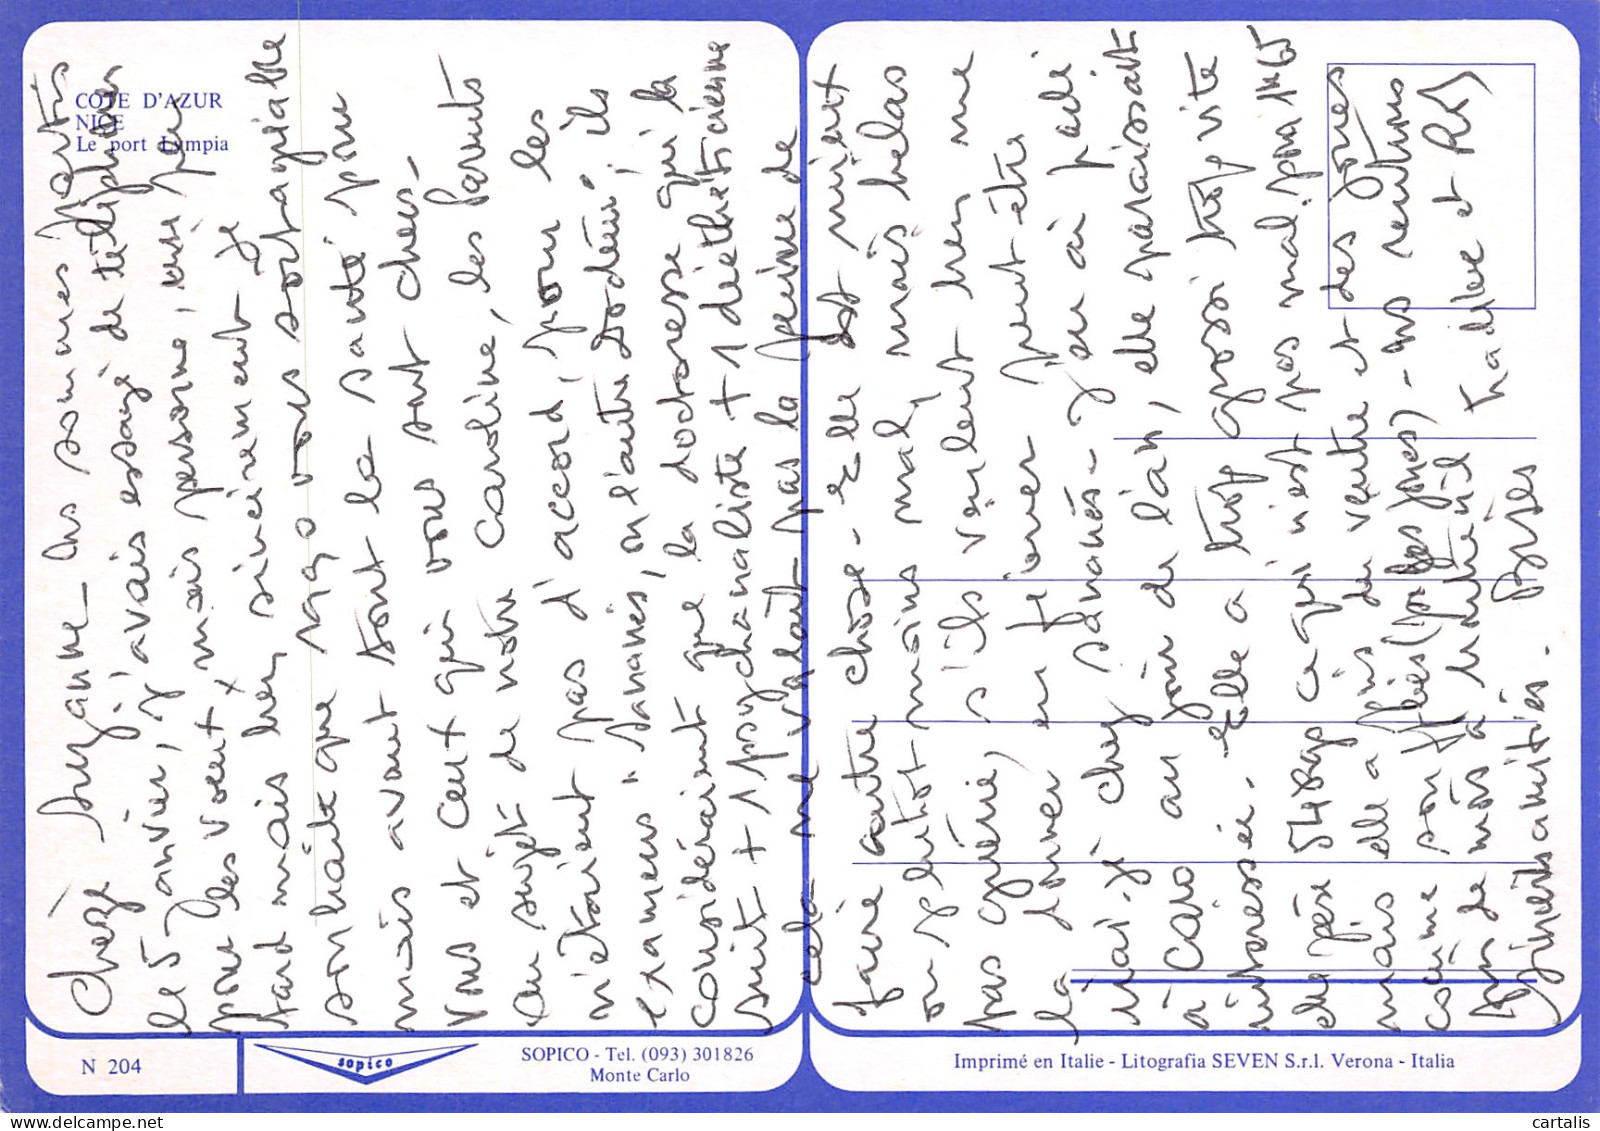 COTE D'AZUR
NICE
Le port Lympia
Chère Suzanne - Ns sommes partis
le 5 janvier, j'avais essayé de téléphoner
pour les voeux mais personne, un peu
tard mais bien sincèrement je
souhaite que 1990 vous soit agréable
mais avant tout la santé pour
vous et ceux qui vous sont chers -
Au sujet de notre Caroline, les parents
n'étaient pas d'accord, pour les
examens. Jamais, ou l'autre Docteur, ils
considéraient que la doctoresse qui la
suit + 1 psychanaliste + 1 diététicienne
cela ne valait pas la peine de
faire autre chose - Elle est mieux
ou plutôt moins mal, mais hélas
pas guérie, s'ils veulent bien me
la donner en février peut être
irai-je chez Jamanes - J'en ai parlé
à Caro au jour de l'an, elle paraissait
intéressée. Elle a trop grossi trop vite
elle pèse 54 kg ce qui n'est pas mal pour 1m65
mais elle a pris du ventre et des joues
comme son (pr les joues) - ns rentrons
fin de mois à Maintenant
Bien amitiés. Bises
SOPICO - Tel. (093) 301826
Monte Carlo
N 204
sopico
Imprimé en Italie - Litografia SEVEN S.r.l. Verona - Italia
cartalis